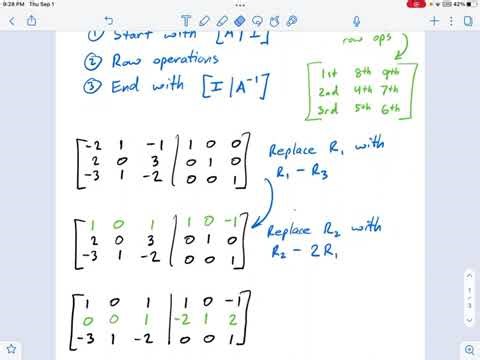 9:28 PM Thu Sep 1
42%
① Start with [A | I]
row ops
② Row operations
③ End with [I | A⁻¹]
1st 8th 9th
2nd 4th 7th
3rd 5th 6th
-2 1 -1 | 1 0 0
2 0 3 | 0 1 0
-3 1 -2 | 0 0 1
Replace R₁ with
R₁ - R₃
1 0 1 | 1 0 -1
2 0 3 | 0 1 0
-3 1 -2 | 0 0 1
Replace R₂ with
R₂ - 2R₁
1 0 1 | 1 0 -1
0 0 1 | -2 1 2
-3 1 -2 | 0 0 1
1 / 3